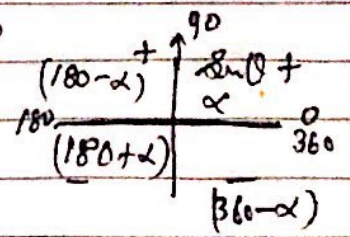 90
(180-α) + Sinθ +
α
180 0
360
(180+α)
- -
(360-α)